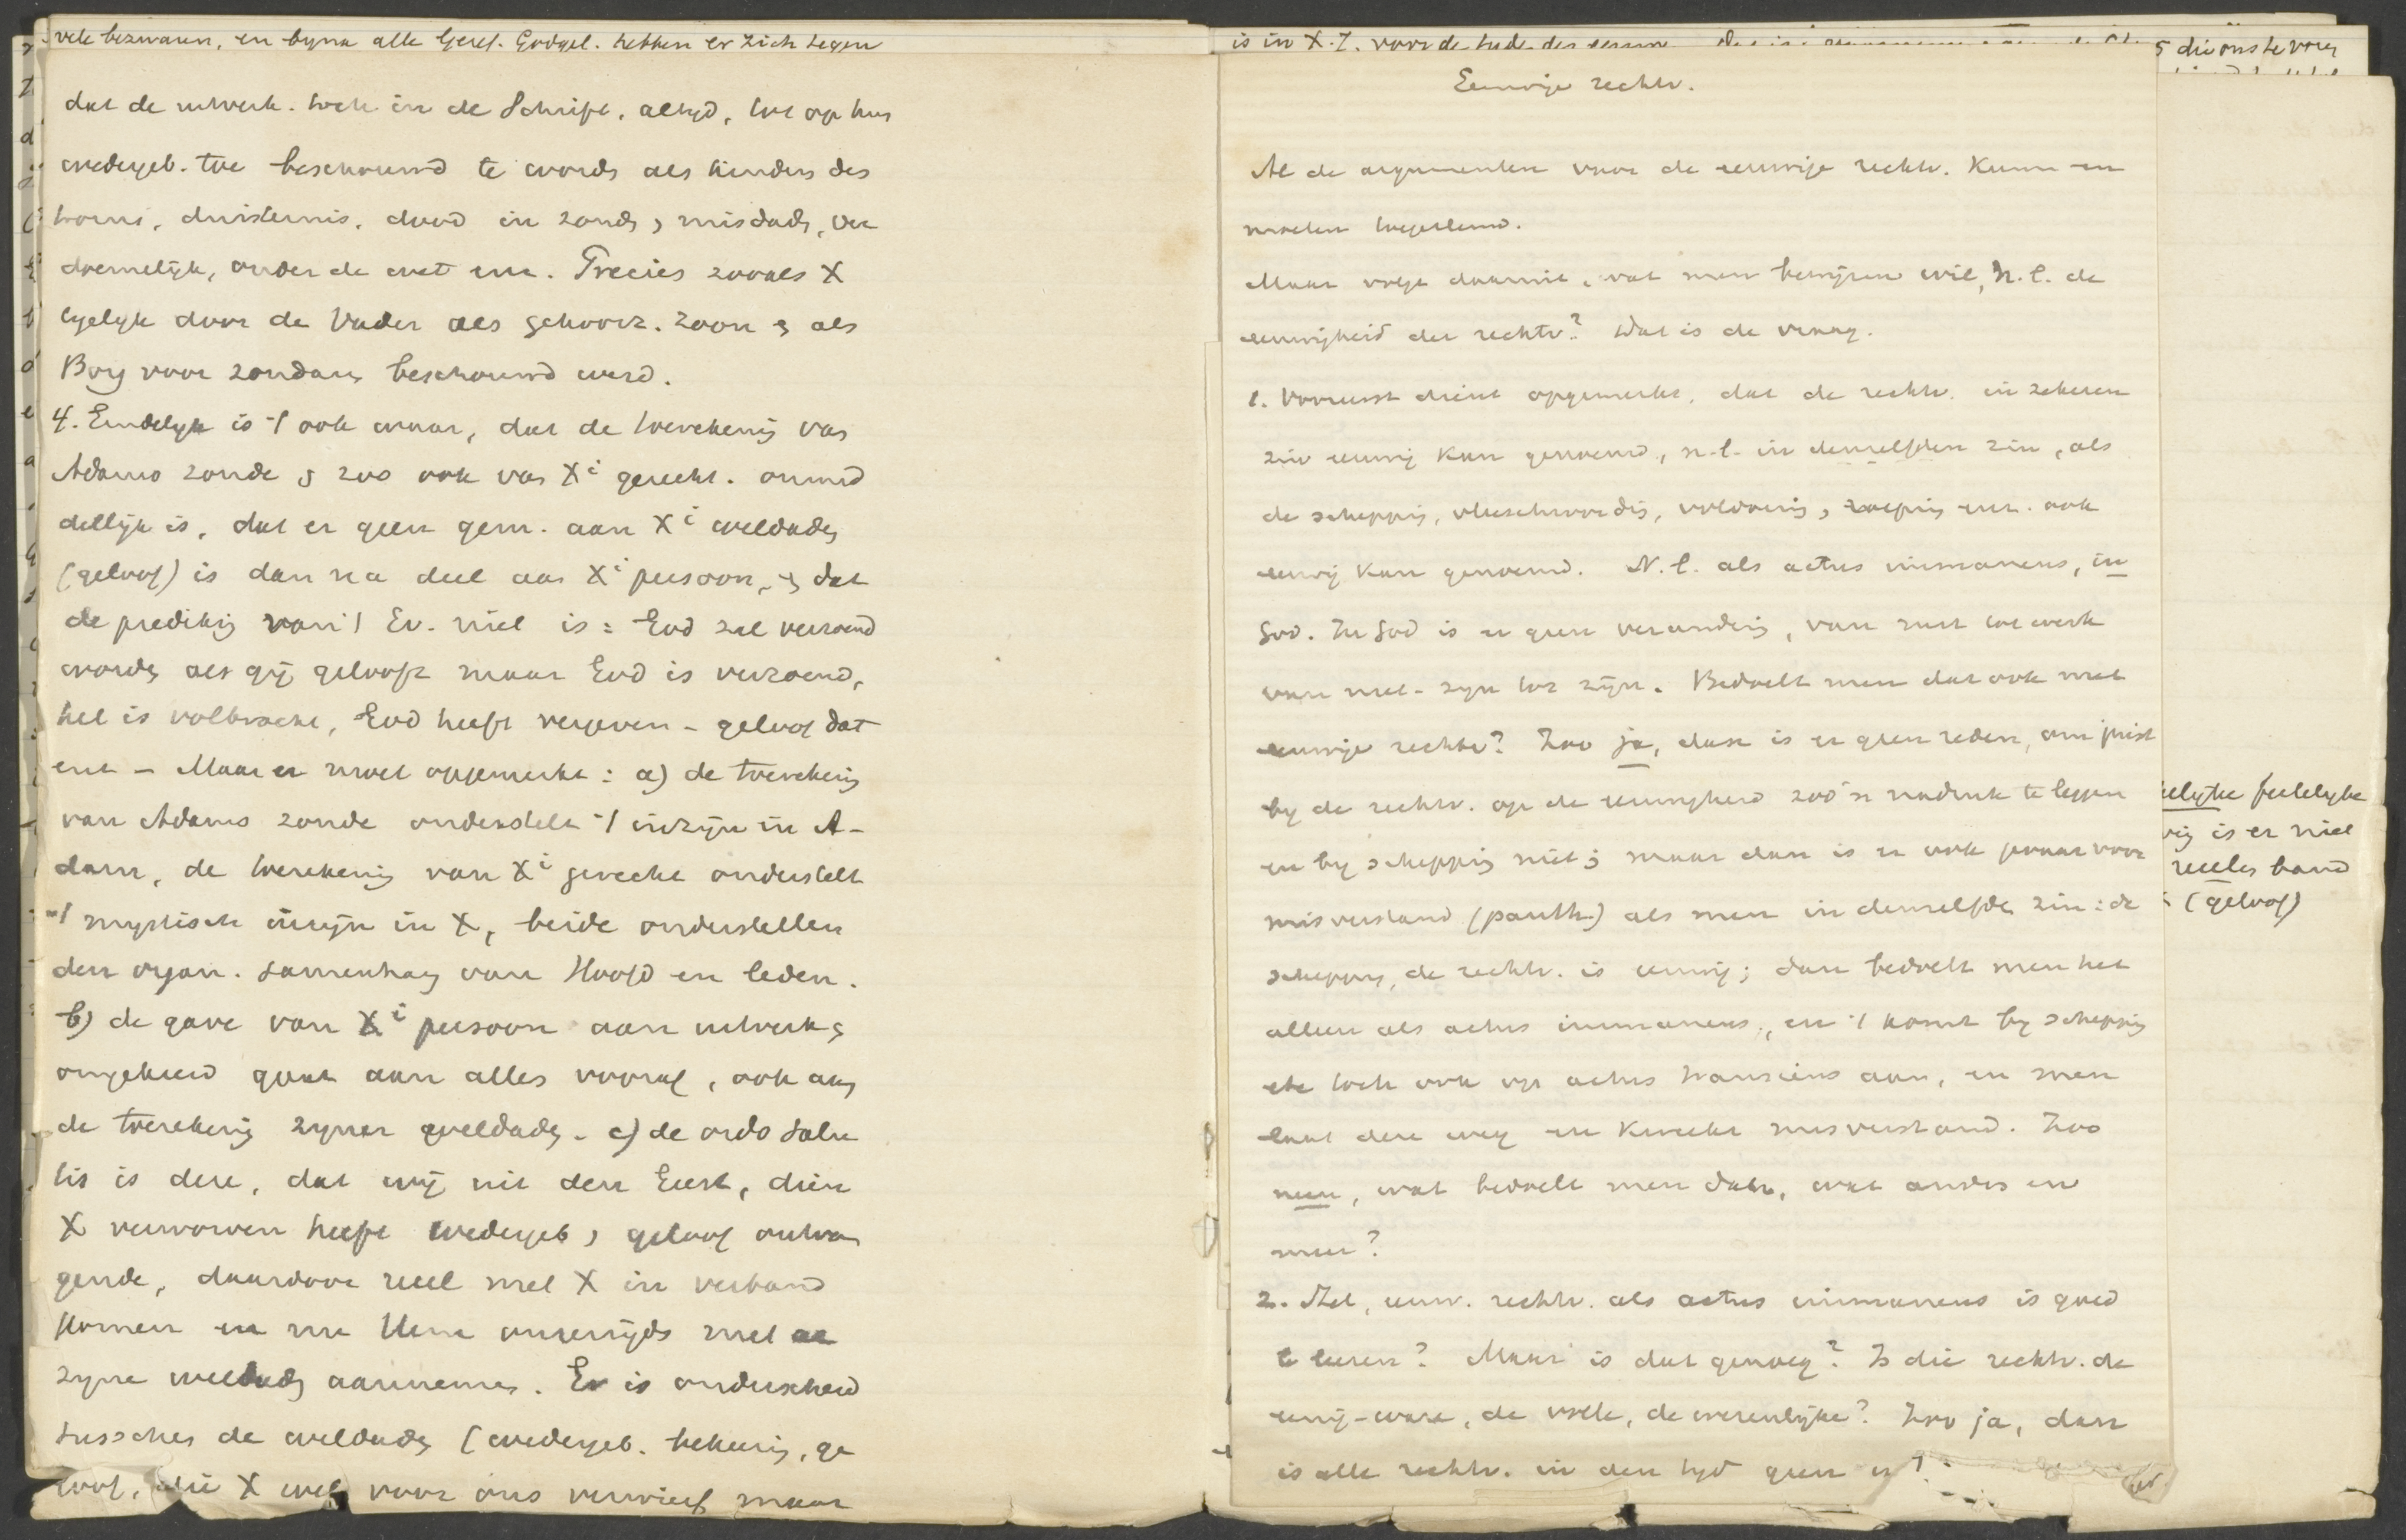 vele bezwaren, en byna alle Geref. Godgel. hebben er zich tegen
dat de uitverk. toch in de Schrift, altyd, tot op hun
wedergeb. toe beschouwd te words als kinders des
toorns, duisternis, dood in zonds, misdads, ver
doemelijk, onder de wet enz. Precies zooals X
tegelyk door de Vader als gehoorz. Zoon & als
Borg voor zondars beschouwd werd.
4. Eindelyk is 't ook waar, dat de toerekenig van
Adams zonde & zoo ook van Xi gerecht. onmid
dellijk is, dat er geen gem. aan Xi weldads
(geloof) is dan na deel aan Xi persoon, & dat
de predikig van 't Ev. niet is: God zal verzoend
words als gij gelooft maar God is verzoend,
het is volbracht, God heeft vergeven - geloof dat
enz - Maar er moet opgemerkt: a) de toerekenig
van Adams zonde onderstelt 't inzijn in A-
dam, de toerekenig van Xi gerecht onderstelt
't mystisch inzijn in X, beide onderstellen
den organ. samenhang van Hoofd en leden.
b) de gave van Xi persoon aan uitverk &
omgekeerd gaat aan alles vooraf, ook aan
de toerekenig zyner weldads. c) de ordo salu
tis is deze, dat wij uit den Geest, dien
X verworven heeft wedergeb, geloof ontvan
gende, daardoor reëel met X in verband
komen en nu Hem onzerzijds met
zyne weldads aannemen. Er is onderscheid
tusschen de weldads (wedergeb. bekeerig, ge
loof, die X wel voor ons verwierf maar
is in X. Z. voor de
5 die ons te voren
Eeuwige rechtv.
Al de argumenten voor de eeuwige rechtv. kunn en
moeten toegestemd.
Maar volgt daaruit, wat men bewijzen wil, n.l. de
eeuwigheid der rechtv? Dat is de vraag.
1. Vooreerst dient opgemerkt, dat de rechtv. in zekeren
zin eeuwig kan genoemd, n.l. in denzelfden zin, als
de scheppig, vleeschwordig, voldoenig, roepig enz. ook
eeuwig kan genoemd. N.l. als actus immanens, in
God. In God is er geen veranderig, van rust tot werk
van niet-zyn tot zijn. Bedoelt men dat ook met
eeuwige rechtv? Zoo ja, dan is er geen reden, om juist
by de rechtv. op de eeuwigheid zoo'n nadruk te leggen
en by scheppig niet; maar dan is er ook gevaar voor
misverstand (panth.) als men in denzelfde zin: de
schepping, de rechtv. is eeuwig; dan bedoelt men het
alleen als actus immanens, en 't komt by scheppig
etc toch ook op actus transiens aan, en men
laat deze weg en kweekt misverstand. Zoo
neen, wat bedoelt men dan, wat anders en
meer?
2. Zet, eeuw. rechtv. als actus immanens is goed
te leeren? Maar is dat genoeg? Is die rechtv. de
eenig-ware, de volle, de wezenlijke? Zoo ja, dan
is alle rechtv. in den tyd geen
elijke feitelyke
is er niet
reeles band
(geloof)